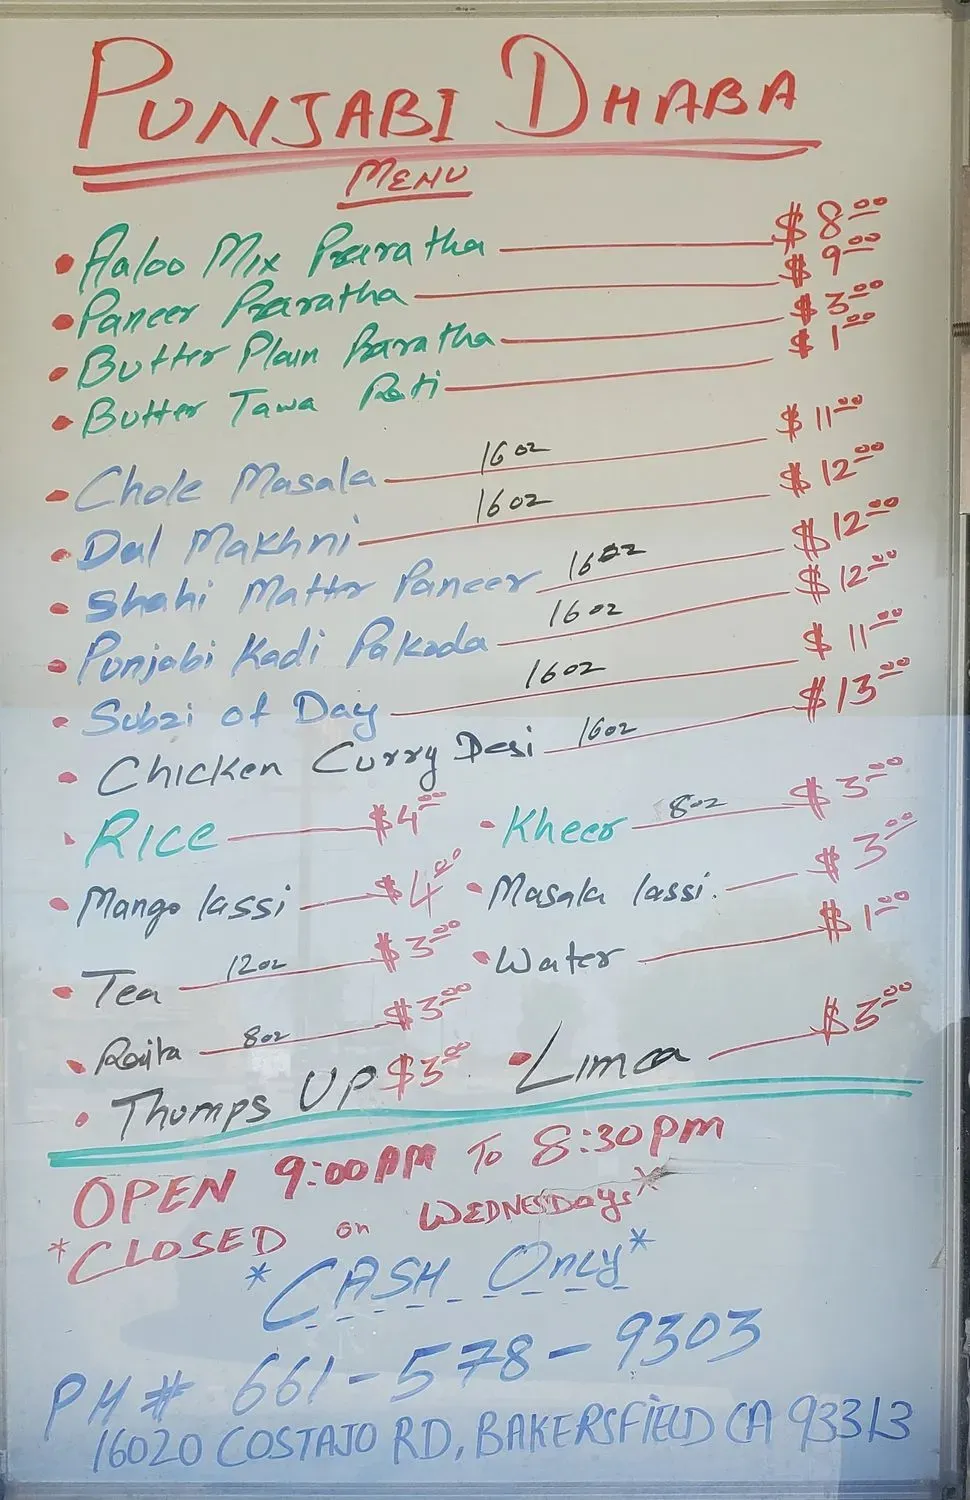 PUNJABI DHABA
MENU
• Aaloo Mix Praratha $8.00
• Paneer Praratha $9.00
• Butter Plain Praratha $3.00
• Butter Tawa Roti $1.00
• Chole Masala 16oz $11.00
• Dal Makhni 16oz $12.00
• Shahi Mattr Paneer 16oz $12.00
• Punjabi Kadi Pakoda 16oz $12.00
• Subzi of Day 16oz $11.00
• Chicken Curry Desi 16oz $13.00
• RICE $4.00 • Kheer 8oz $3.00
• Mango lassi $4.00 • Masala lassi. $3.00
• Tea 12oz $3.00 • Water $1.00
• Raita 8oz $3.00 • Limca $3.00
• Thumps Up $3.00
OPEN 9:00AM To 8:30pm
*CLOSED on WEDNESDays*
*CASH Only*
PH# 661-578-9303
16020 COSTAJO RD, BAKERSFIELD CA 93313